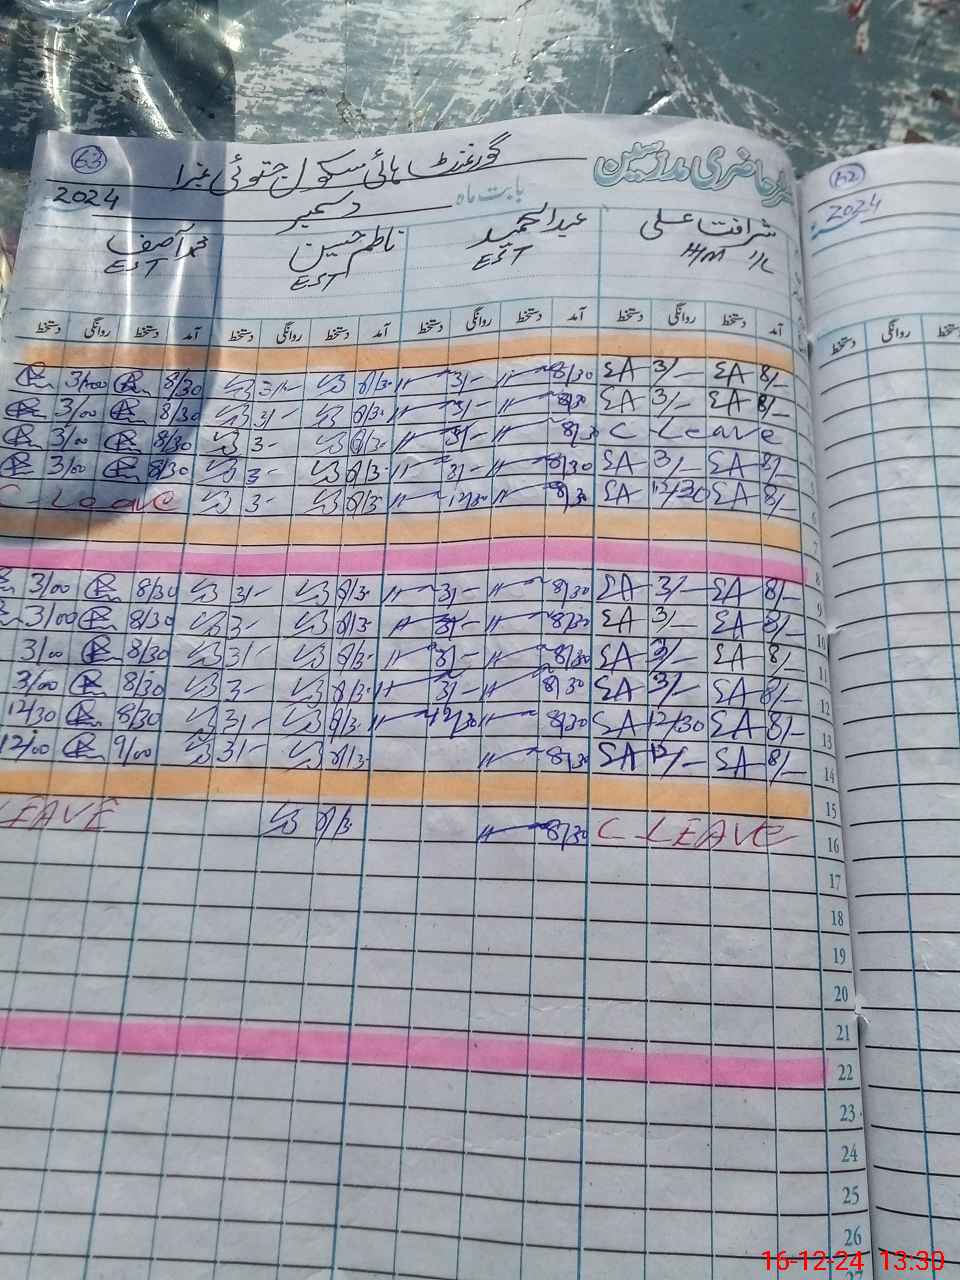 63 گورنمنٹ ہائی سکول جتوئی نمبر1 حاضری مدرسین
2024 دسمبر بابت ماہ
شرافت علی عبدالحمید ناظم حسین محمد آصف
H/M I/C EST EST EST
آمد دستخط روانگی دستخط آمد دستخط روانگی دستخط آمد دستخط روانگی دستخط آمد دستخط روانگی دستخط
3/00 8/30 3/- 8/3- 3/- 8/30 ΣA 3/- ΣA 8/-
3/00 8/30 3/- 8/3- 3/- 8/30 ΣA 3/- ΣA 8/-
3/00 8/30 3- 8/3- 3/- 8/30 C Leave
3/00 8/30 3- 8/3- 3/- 8/30 ΣA 3/- ΣA 8/-
C-Leave 3- 8/3- 12/30 8/30 ΣA 12/30 ΣA 8/- 6
7
8
3/00 8/30 3/- 8/3- 3/- 8/30 ΣA 3/- ΣA 8/- 9
3/00 8/30 3- 8/3- 3/- 8/30 ΣA 3/- ΣA 8/- 10
3/00 8/30 3/- 8/3- 3/- 8/30 ΣA 3/- ΣA 8/- 11
3/00 8/30 3- 8/3- 3/- 8/30 ΣA 3/- ΣA 8/- 12
12/30 8/30 3/- 8/3- 12/30 8/30 ΣA 12/30 ΣA 8/- 13
12/00 9/00 3/- 8/3- 8/30 ΣA 12/- ΣA 8/- 14
15
LEAVE 8/3- 8/30 C LEAVE 16
17
18
19
20
21
22
23
24
25
26
27
2024
دستخط روانگی
16-12-24 13:30